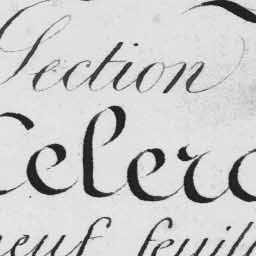 Section
celerc
neuf feuill